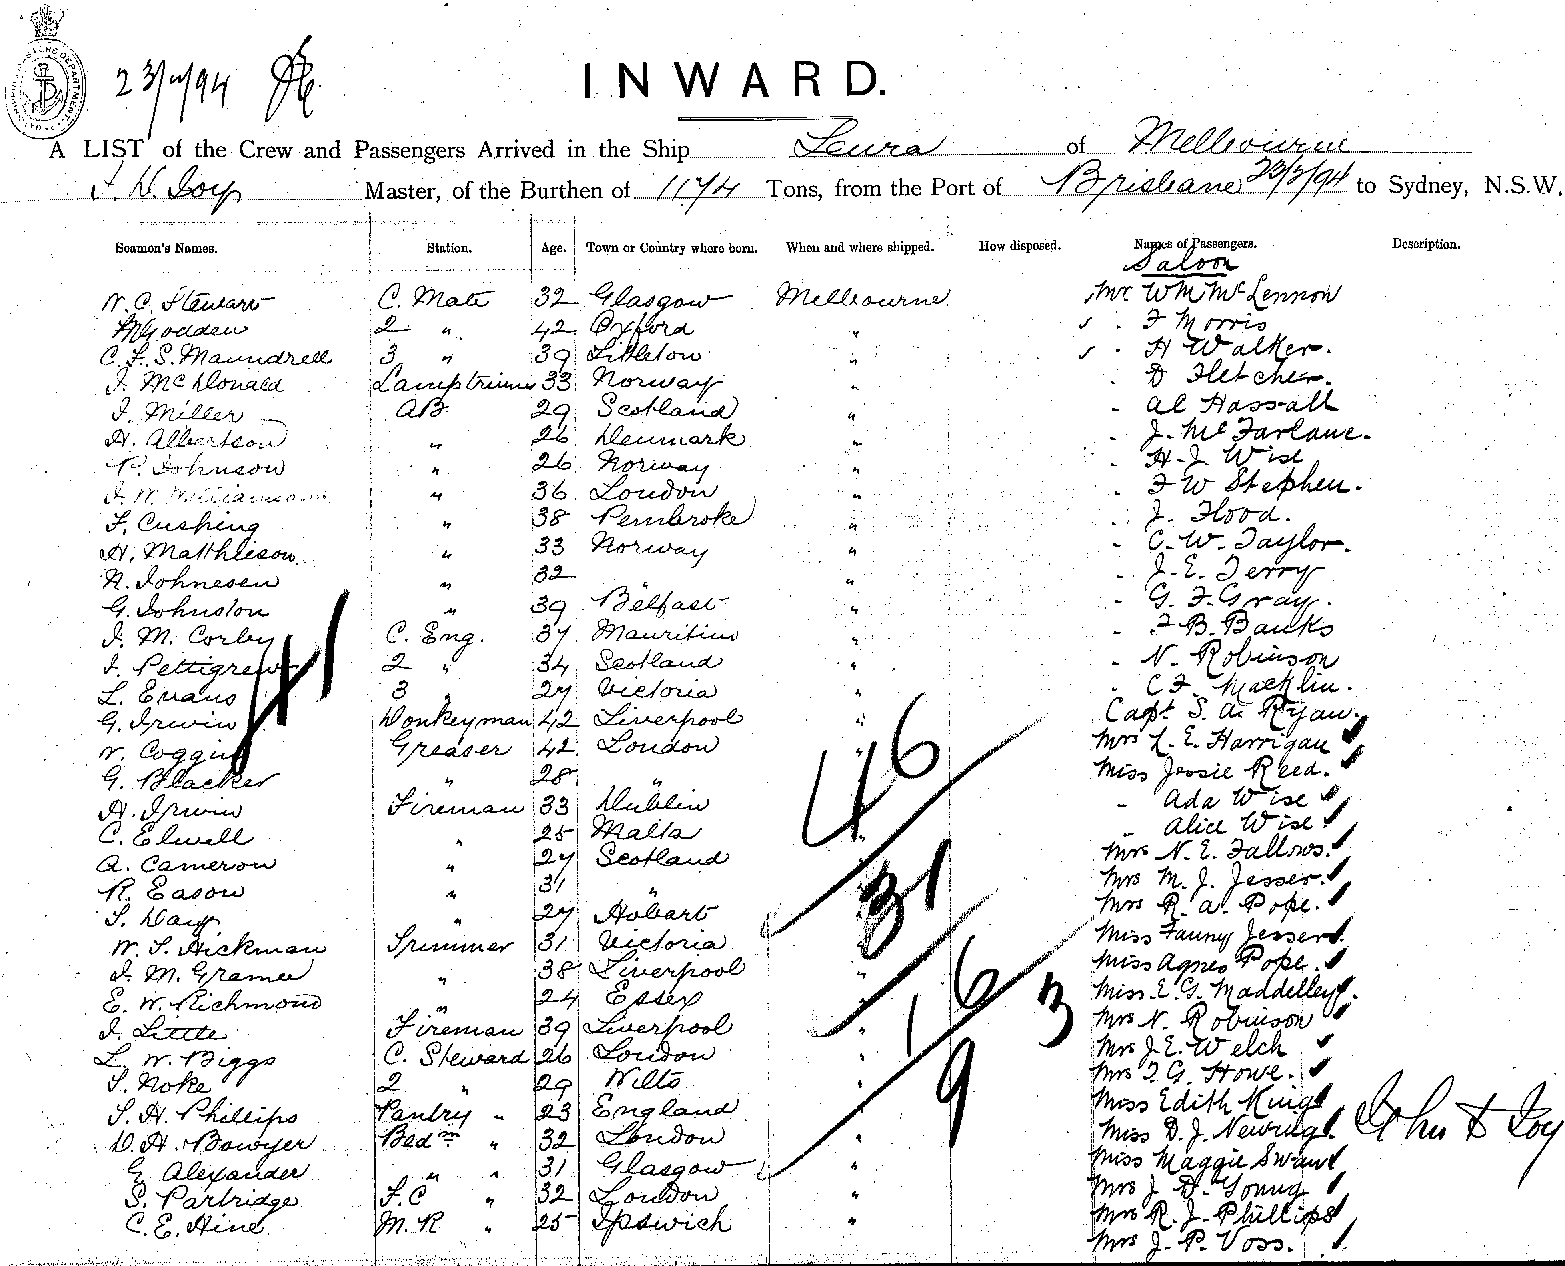 23/7/94
INWARD.
A LIST of the Crew and Passengers Arrived in the Ship Leura of Melbourne
J. D. Joy Master, of the Burthen of 1174 Tons, from the Port of Brisbane 23/7/94 to Sydney, N.S.W.
Seamen's Names. Station. Age. Town or Country where born. When and where shipped. How disposed. Names of Passengers. Description.
Saloon
W. C. Stewart C. Mate 32 Glasgow Melbourne Mr Wm McLennon
M Godden 2 " 42 Oxford " " F Morris
C. F. S. Maundrell 3 " 39 Littleton " " H Walker.
J. McDonald Lamptrimmer 33 Norway " " D Fletcher.
J. Miller AB 29 Scotland " " Al Hassall
H. Albertson " 26 Denmark " " J. McFarlane.
P. Johnson " 26 Norway " " H. J. Wise
J. W. Williamson " 36 London " " F W Stephen.
F. Cushing " 38 Pembroke " " J. Flood.
H. Matthieson " 33 Norway " " C. W. Taylor.
N. Johnesen " 32 " " " J. E. Terry
G. Johnston " 39 Belfast " " G. F. Gray.
J. M. Corley C. Eng. 37 Mauritius " " F B. Banks
J. Pettigrew 2 " 34 Scotland " " N. Robinson
L. Evans 3 " 27 Victoria " " C F. Macklin.
G. Irwin Donkeyman 42 Liverpool " Capt S. A. Ryan.
W. Coggins Greaser 42 London " Mrs L. E. Harrigan
G. Blacker " 28 " Miss Jessie Reed.
H. Irwin Fireman 33 Dublin " Ada Wise
C. Elwell " 25 Malta " " Alice Wise
A. Cameron " 27 Scotland Mrs N. E. Fallows.
R. Eason " 31 " Mrs M. J. Jesser.
S. Davy " 27 Hobart Mrs R. A. Pope.
W. S. Hickman Trimmer 31 Victoria Miss Fanny Jesser.
J. M. Gramer " 38 Liverpool " Miss Agnes Pope.
E. W. Richmond " 24 Essex " Miss E. G. Maddelley.
J. Little Fireman 39 Liverpool " Mrs N. Robinson
L. W. Biggs C. Steward 26 London " Mrs J. E. Welch
S. Noke 2 " 29 Wilts " Mrs T. G. Howe.
S. H. Phillips Pantry " 23 England Miss Edith King
D. H. Bowyer Bedrm " 32 London " Miss D. J. Newing.
G. Alexander " " 31 Glasgow " Miss Maggie Swan
S. Partridge F.C " 32 London " Mrs J. H. Young
C. E. Hine M. R " 25 Ipswich " Mrs R. J. Phillips
Mrs J. P. Voss.
41
46
31
16
3
9
John D Joy